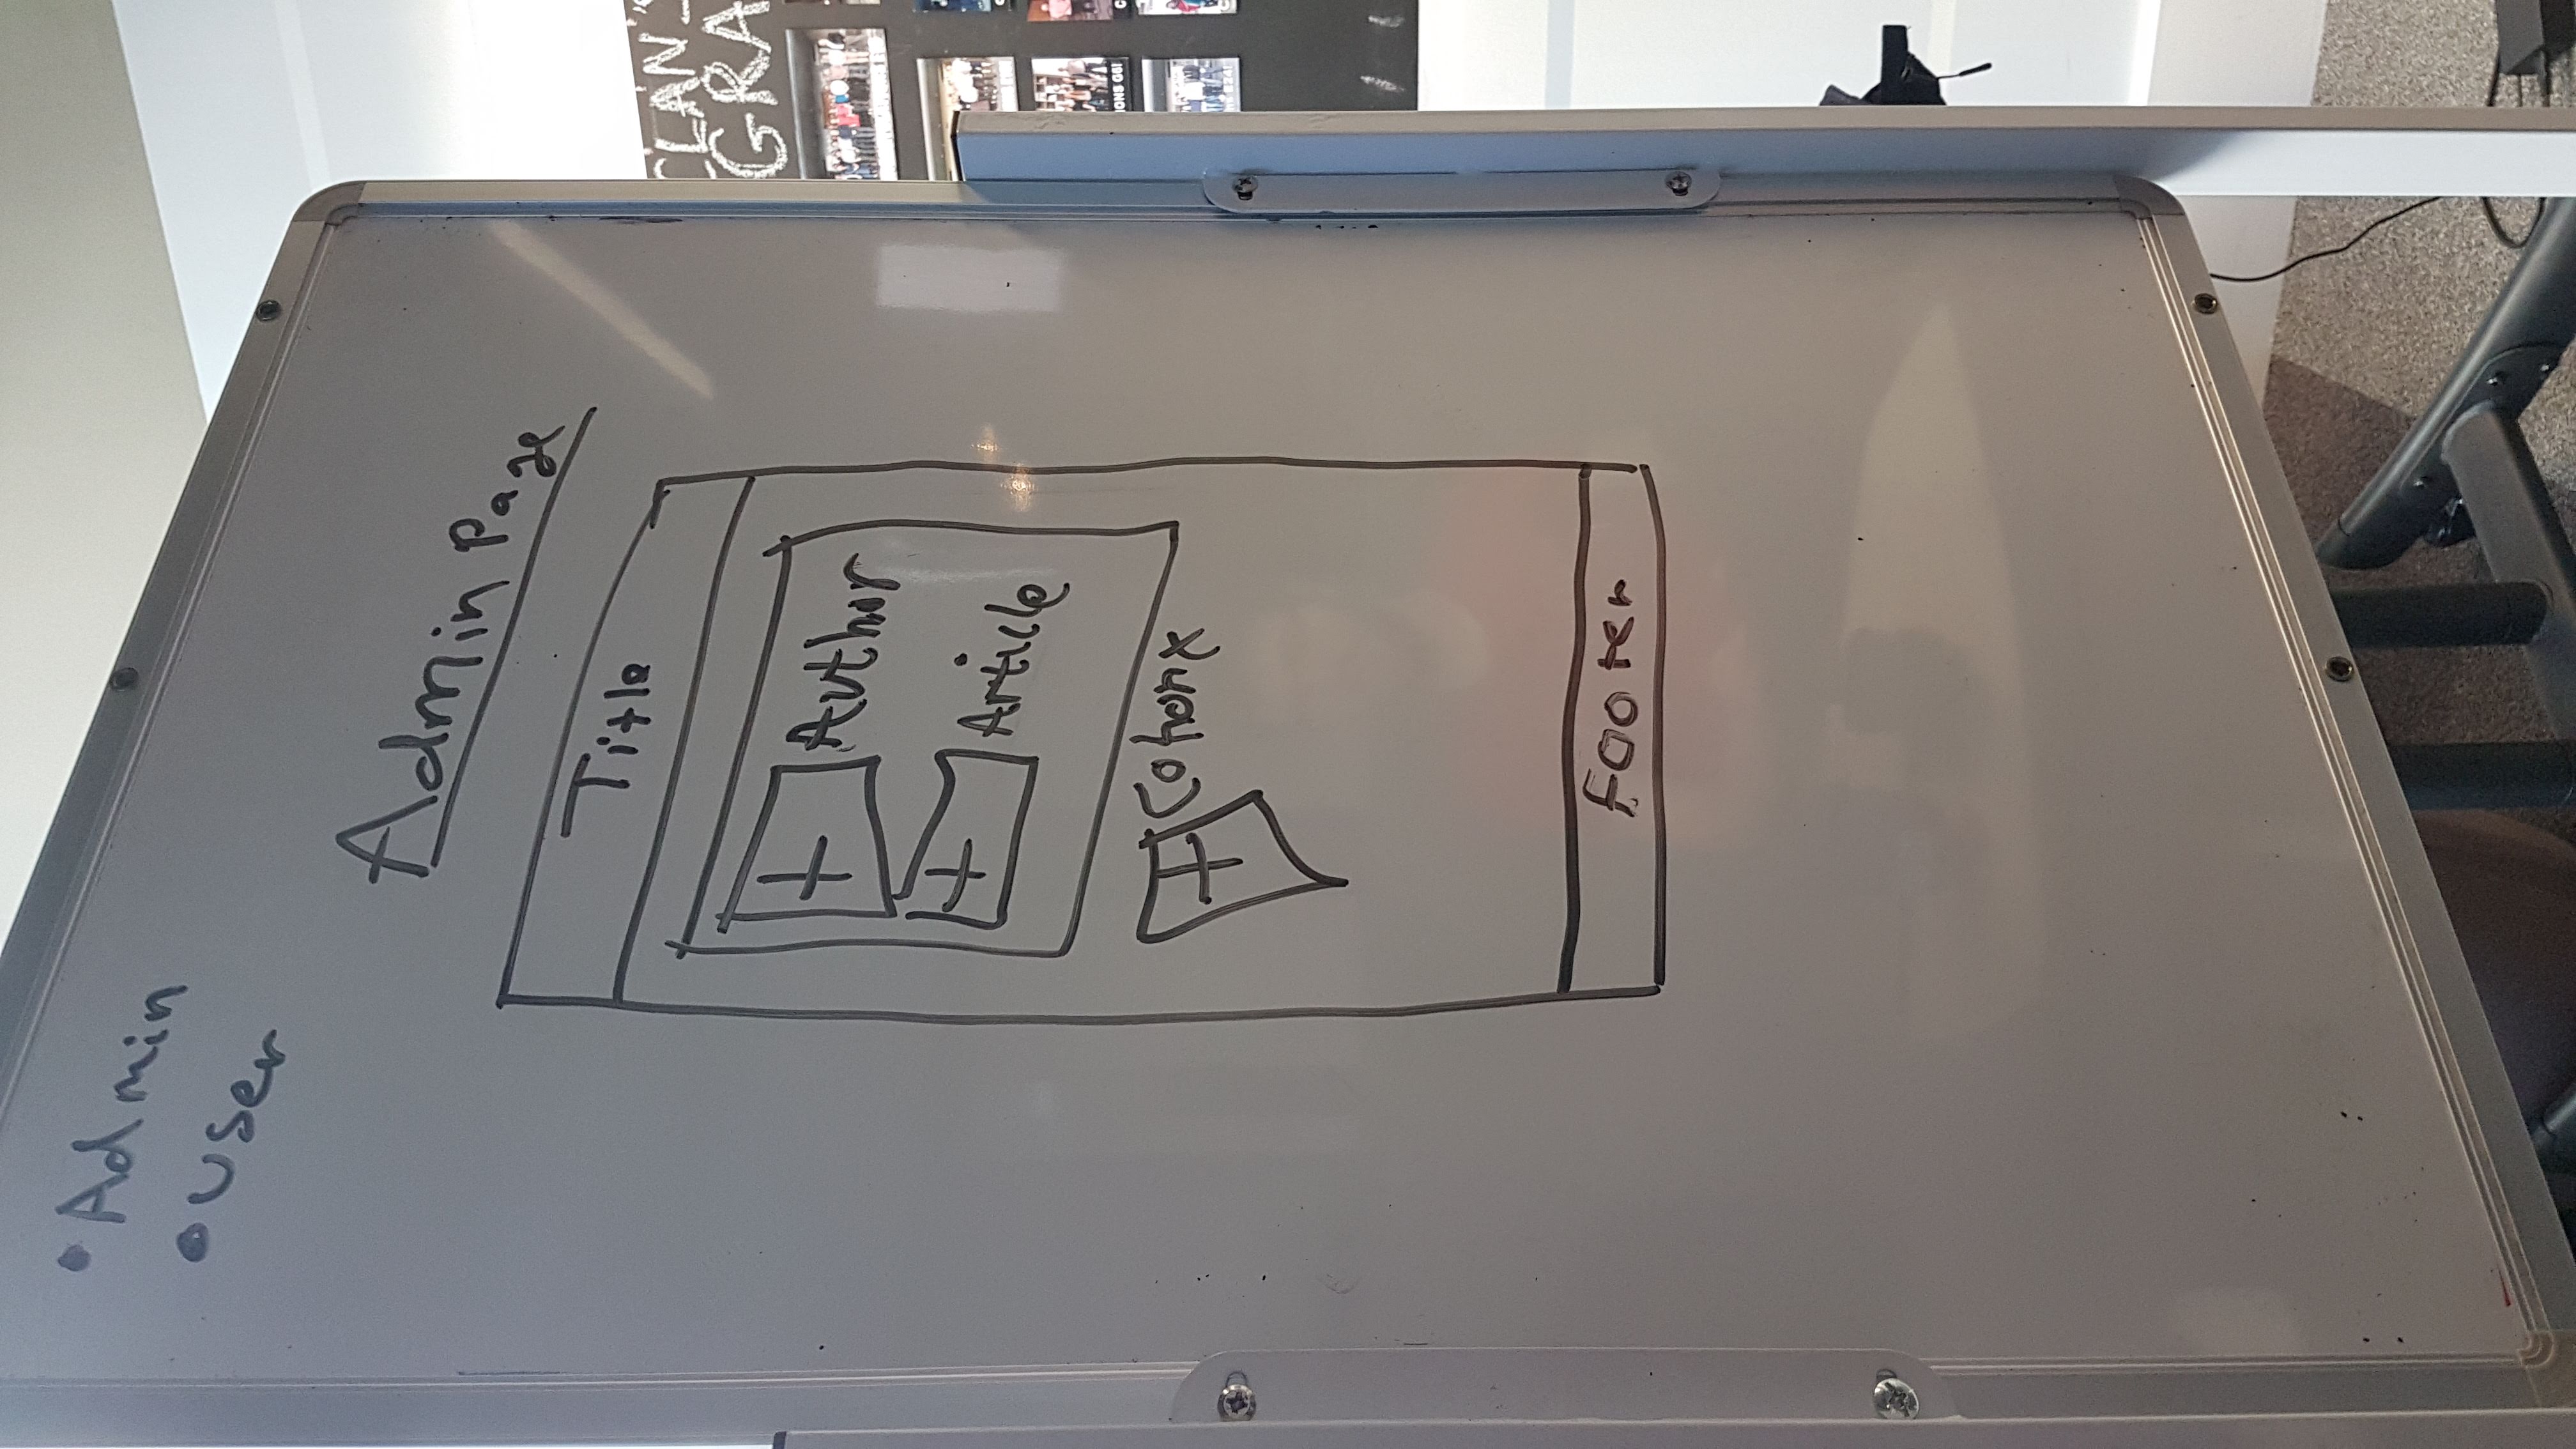 • Admin
• User
Admin Page
Title
+ Author
+ Article
+ Cohort
Footer
CLAN'S
GRA